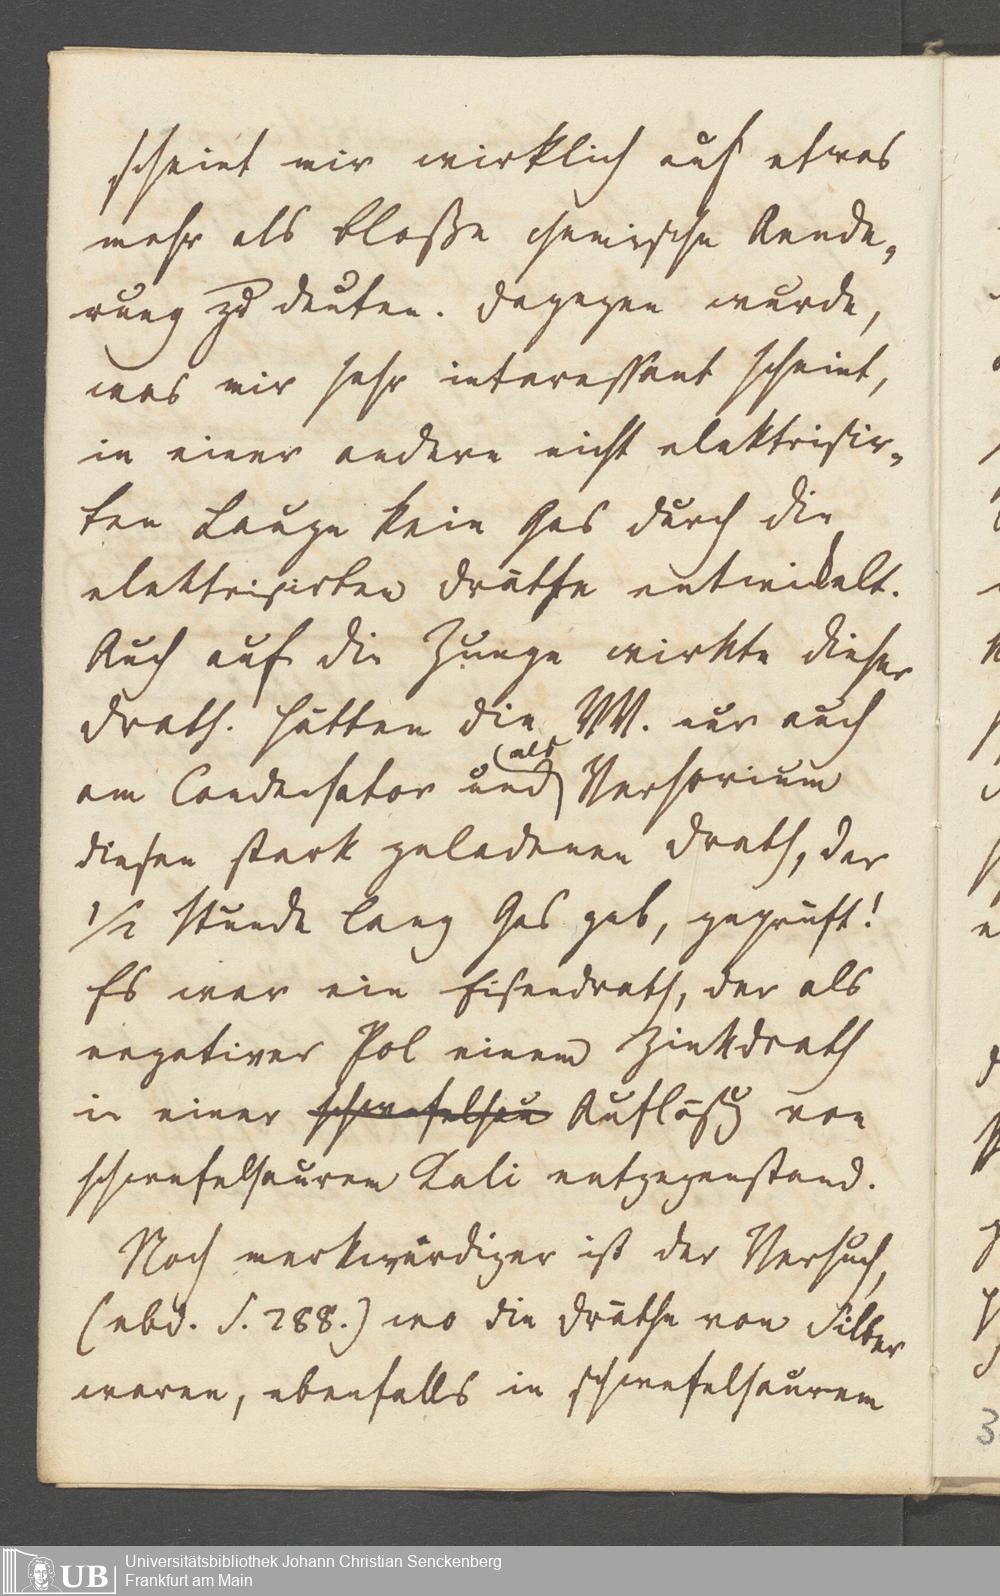 scheint mir wirklich auf etwas
mehr als bloße chemische Aende-
rung zu deuten. Dagegen wurde,
was mir sehr interessant scheint,
in einer andern nicht elektrisir-
ten Lauge kein Gas durch die
elektrisirten Dräthe entwickelt.
Auch auf die Zunge wirkte dieser
Drath. Hätten die VV. nur auch
am Condensator und (als Versorium
diesen stark geladenen Drath, der
1/2 Stunde lang Gas gab, geprüft!
Es war ein Eisendrath, der als
negativer Pol einem Zinkdrath
in einer schwefelsau Auflösg von
schwefelsaurem Kali entgegenstand.
Noch merkwürdiger ist der Versuch,
(ebd. S. 288.) wo die Dräthe von Silber
waren, ebenfalls in schwefelsaurem
3
UB
Universitätsbibliothek Johann Christian Senckenberg
Frankfurt am Main